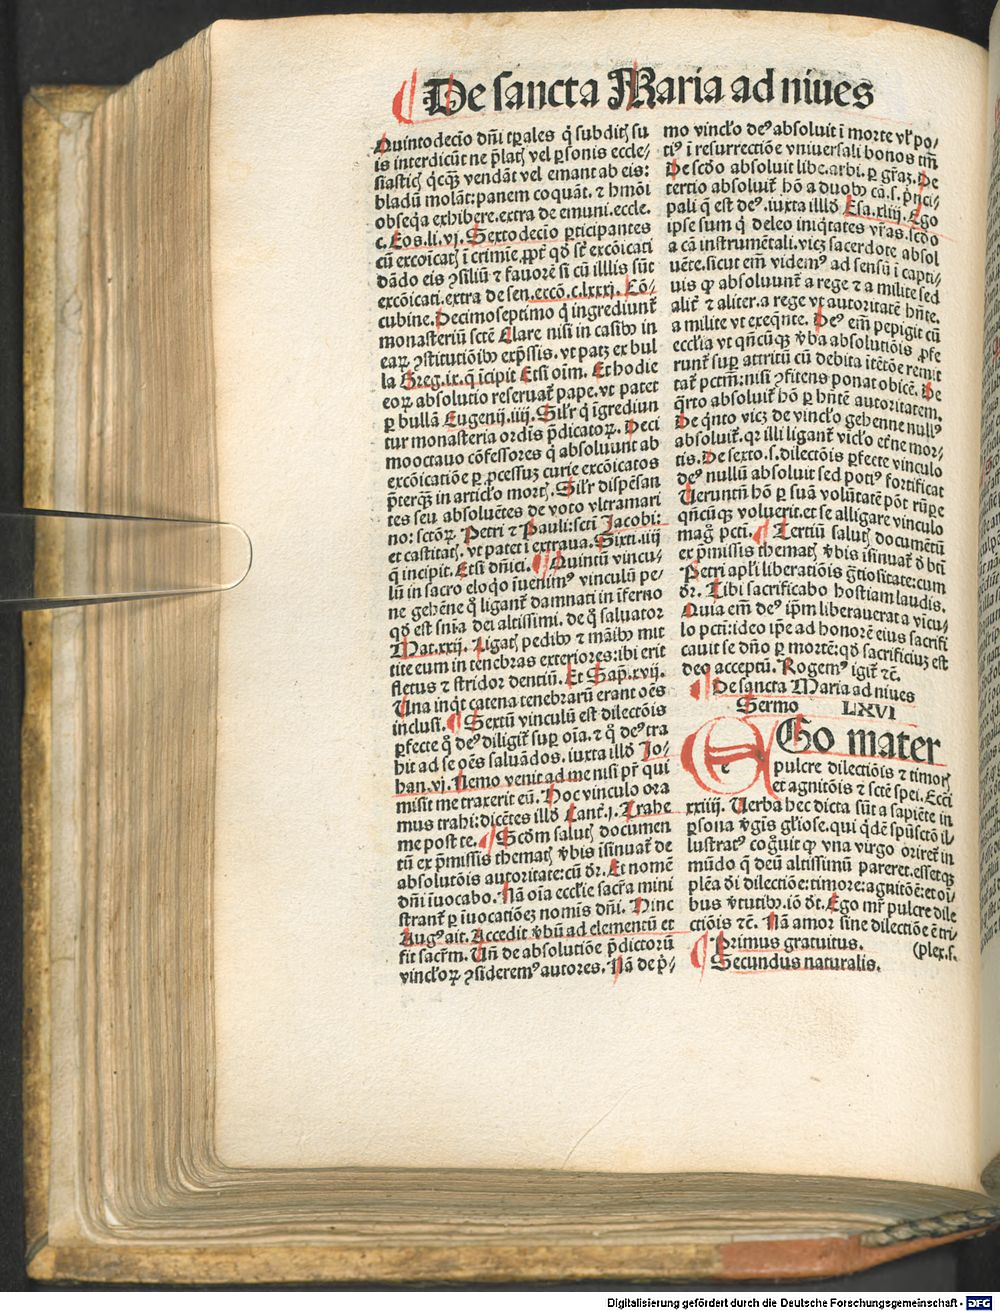 De sancta Maria ad niues
Quintodecio dñi tꝑales q̃ subditꝭ su
is interdicũt ne p̃latꝭ vel ꝑsonis eccle⸗
siasticꝭ q̃cq̃ꝫ vendãt vel emant ab eis:
bladũ molãt: panem coquãt. ⁊ hmõi
obseq̃a exhibere. extra de emuni. eccle.
c. Eos. li. vj. Sextodecio ꝑticipantes
cũ excoĩcatꝭ ĩ crimĩe, ꝓpt̃ qđ st̃ excõicati
dãdo eis ꝯsiliũ ⁊ fauorẽ si cũ illlis sũt
excõicati. extra de sen. eccõ. c. lxxxj. Cõ⸗
cubine. Decimoseptimo q̃ ingrediunt̃
monasteriũ sctẽ Clare nisi in casibꝰ in
eaꝝ ꝯstitutiõibꝰ exp̃ssis. vt patꝫ ex bul
la Greg. ix. q̃ ĩcipit Etsi oĩm. Et hodie
eoꝝ absolutio reseruat̃ pape. vt patet
ꝑ bullã Eugenij. iiij. Sil'r q̃ ĩgrediun
tur monasteria ordĩs p̃dicatoꝝ. Deci
mooctauo cõfessores q̃ absoluunt ab
excõicatiõe ꝑ ꝓcessuꝫ curie excõicatos
p̃terq̃ꝫ in articl'o mortꝭ. Sil'r dispẽsan
tes seu absoluẽtes de voto vltramari
no: sctõꝝ Petri ⁊ Pauli: scti Jacobi:
et castitatꝭ. vt patet ĩ extraua. Sixti. iiij
q̃ incipit. Etsi dñici. ¶ Quintũ vincu⸗
lũ in sacro eloq̃o ĩuenimꝰ vinculũ pe⸗
ne gehẽne q̃ ligant̃ damnati in ĩferno
qđ est snĩa dei altissimi. de q̃ saluator
Mat. xxij. Ligatꝭ pedibꝰ ⁊ mãibꝰ mit
tite eum in tenebras exteriores: ibi erit
fletus ⁊ stridor dentiũ. Et Sap̃. xvij.
Una inq̃t catena tenebrarũ erant oẽs
inclusi. ¶ Sextũ vinculũ est dilectõis
ꝑfecte q̃ deꝰ diligit̃ suꝑ oĩa. ⁊ q̃ deꝰ tra
hit ad se oẽs saluãdos. iuxta illđ Jo⸗
han. vj. Nemo venit ad me nisi pr̃ qui
misit me traxerit eũ. Hoc vinculo ora
mus trahi: dicẽtes illđ Cant̃. j. Trahe
me post te. ¶ Scđm salutꝭ documen
tũ ex p̃missis thematꝭ v̓bis isinuat̃ de
absolutõis autoritate: cũ dr̃. Et nomẽ
dñi ĩuocabo. Nã oĩa eccl'ie sacr̃a mini
strant̃ ꝑ ĩuocatiõeꝫ nomĩs dñi. Hinc
Augꝰ ait. Accedit v̓bũ ad elementũ et
fit sacr̃m. Uñ de absolutiõe p̃dictorũ
vincl'oꝝ ꝯsideremꝰ autores. Nã de p̃⸗
mo vincl'o deꝰ absoluit ĩ morte vl' po⸗
tiꝰ ĩ resurrectiõe vniuersali bonos tm̃
De scđo absoluit libe. arbi. ꝑ gr̃aꝫ. De
tertio absoluit̃ hõ a duobꝰ cã. s. p̃nci⸗
pali q̃ est deꝰ. iuxta illđ Esa. xliij. Ego
ipse sum q̃ deleo iniq̃tates vr̃as. scđo
a cã instrumẽtali. vicꝫ sacerdote absol
uẽte. sicut em̃ videmꝰ ad sensũ ĩ capti⸗
uis qꝫ absoluunt̃ a rege ⁊ a milite sed
alit̃ ⁊ aliter. a rege vt autoritatẽ hñte.
a milite vt exeq̃nte. Deꝰ em̃ pepigit cũ
eccl'ia vt qñcũqꝫ v̓ba absolutiõis ꝓfe
runt̃ suꝑ attritũ cũ debita itẽtõe remit
tat̃ pctm̃: nisi ꝯfitens ponat obicẽ. De
q̃rto absoluit̃ hõ ꝑ hñtẽ autoritatem.
De q̃nto vicꝫ de vincl'o gehenne nullꝰ
absoluit̃. qꝛ illi ligant̃ vicl'o et̃ne mor⸗
tis. De sexto. s. dilectiõis ꝑfecte vinculo
deꝰ nullũ absoluit sed potiꝰ fortificat
Ueruntñ hõ ꝑ suã volũtatẽ põt rũꝑe
qñcũqꝫ voluerit. et se alligare vinculo
mag̃ pcti. ¶ Tertiũ salutꝭ documẽtũ
ex p̃missis thematꝭ v̓bis isinuat̃ đ bti
Petri apl'i liberatiõis g̃tiositate: cum
dr̃. Tibi sacrificabo hostiam laudis.
Quia em̃ deꝰ ip̃m liberauerat a vicu⸗
lo pcti: ideo ip̃e ad honorẽ eius sacrifi
cauit se dño ꝑ mortẽ: qđ sacrificiuꝫ est
deo acceptũ. Rogemꝰ igit̃ ⁊c̃.
¶ De sancta Maria ad niues
Sermo LXVI
EGo mater
pulcre dilectiõis ⁊ timorꝭ
et agnitõis ⁊ sctẽ spei. Ecci
xxiiij. Uerba hec dicta sũt a sapiẽte in
ꝑsona v̓gis gl'iose. qui q̃dẽ spũsctõ il⸗
lustratꝰ cog̃uit qꝫ vna virgo oriret̃ in
mũdo q̃ deũ altissimũ pareret. essetqꝫ
plẽa đi dilectiõe: timore: agnitõẽ: et oĩ⸗
bus v̓tutibꝰ. iõ đt. Ego mr̃ pulcre dile
ctiõis ⁊c̃. Nã amor siue dilectiõe ẽ tri⸗
(plex. s.
¶ Primus gratuitus.
Secundus naturalis.
Digitalisierung gefördert durch die Deutsche Forschungsgemeinschaft - DFG